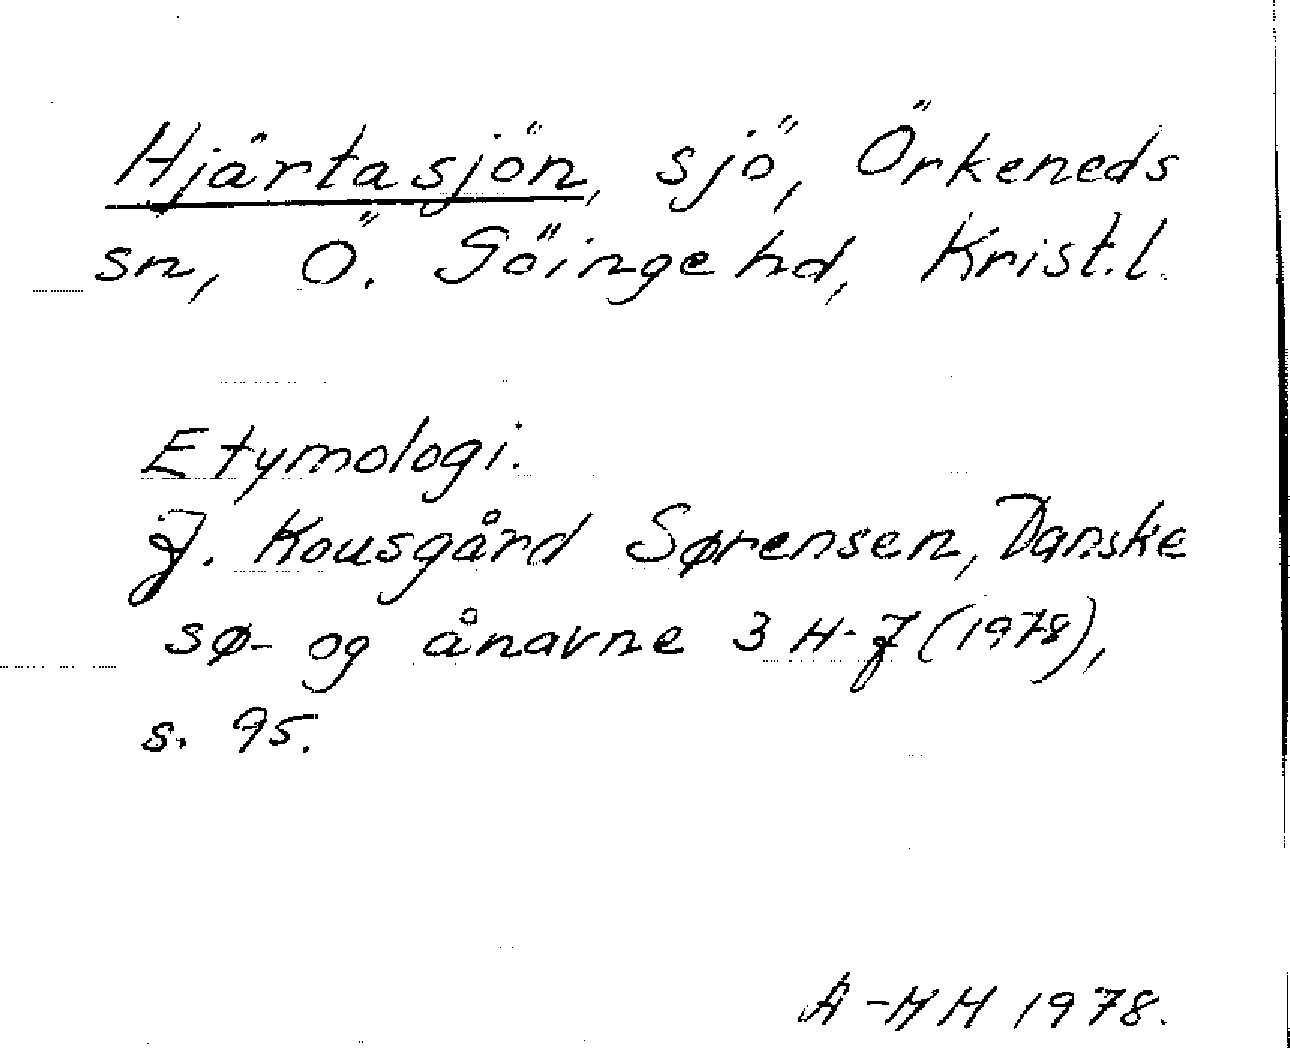 Hjärtasjön, sjö, Örkeneds
sn, Ö. Göinge hd, Krist.l.
Etymologi.
J. Kousgård Sørensen, Danske
sø- og ånavne 3 H-J (1978),
s. 95.
A-MH 1978.